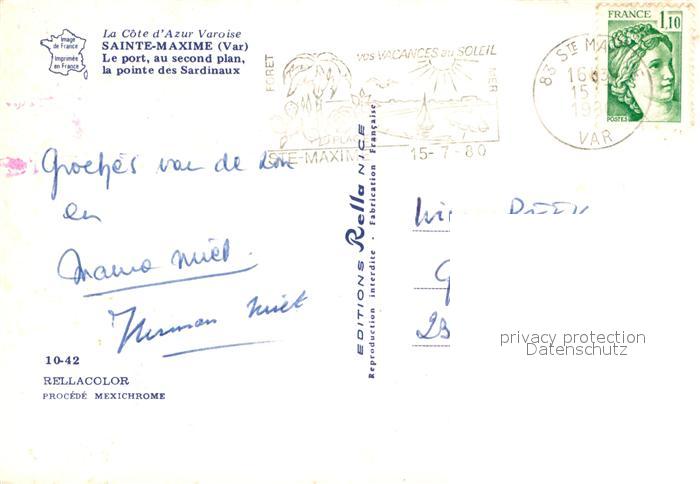 Image
de France
Imprimée
en France
La Côte d'Azur Varoise
SAINTE-MAXIME (Var)
Le port, au second plan,
la pointe des Sardinaux
FORET
VOS VACANCES au SOLEIL
MER
LA PLAGE
STE-MAXIME
15-7-80
83 STE MA
16
15
19
VAR
FRANCE
1,10
POSTES
Groetjes van de
en
Mama Miet.
Herman Miet
10-42
RELLACOLOR
PROCÉDÉ MEXICHROME
EDITIONS Rella NICE
Reproduction interdite - Fabrication Française
privacy protection
Datenschutz